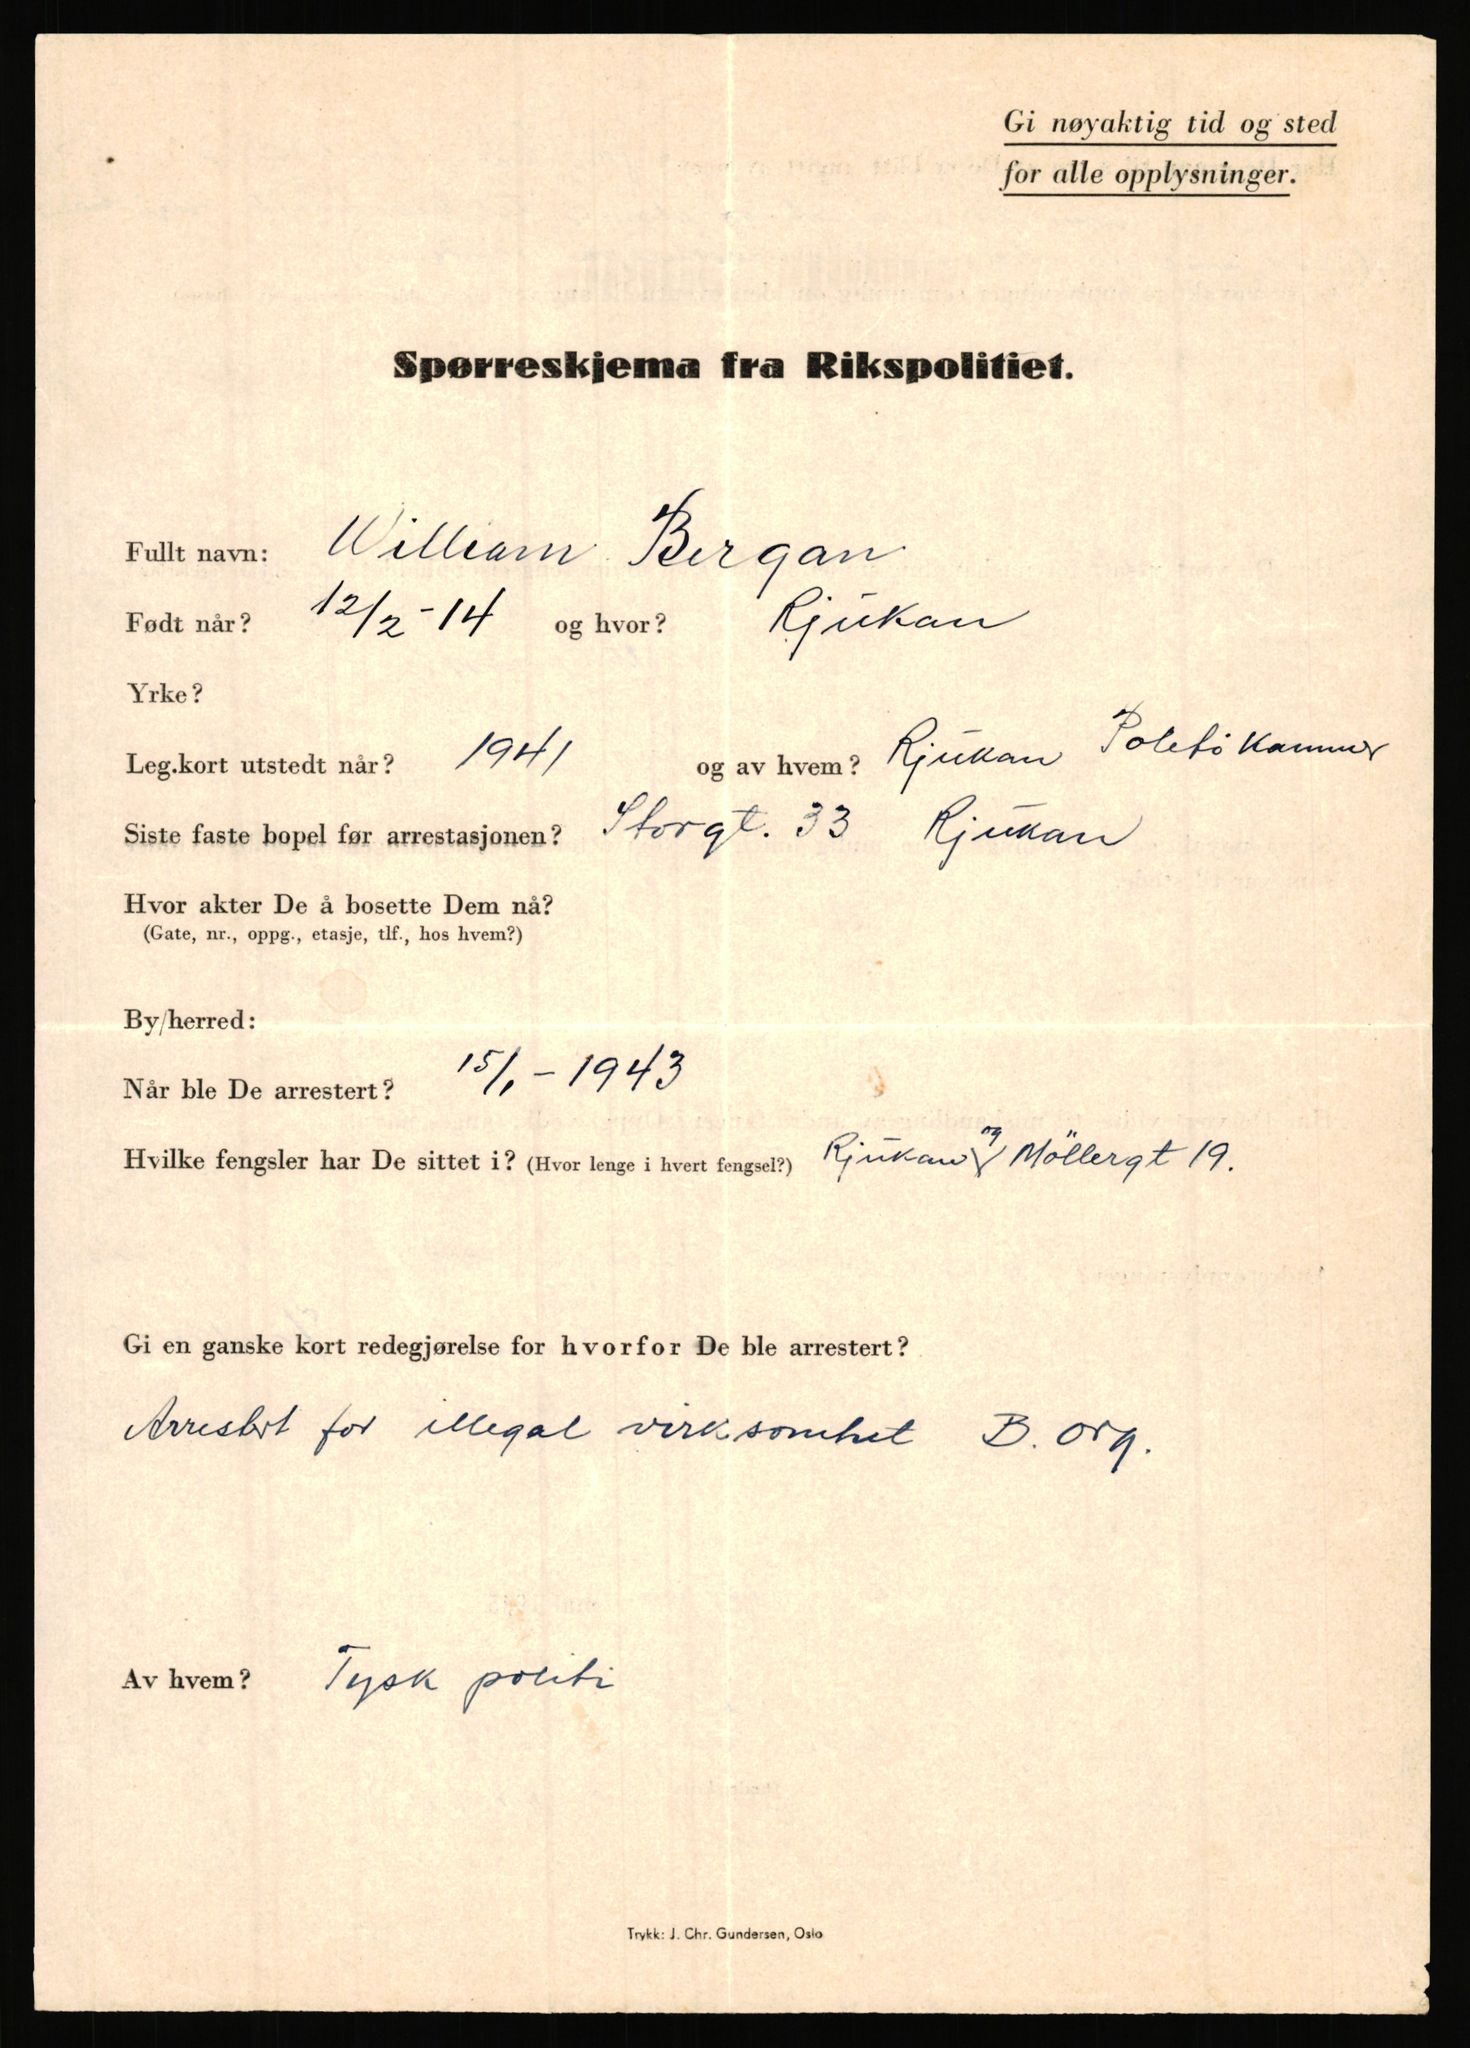 Gi nøyaktig tid og sted
for alle opplysninger.
Spørreskjema fra Rikspolitiet.
Fullt navn: William Bergan
Født når? 12/2-14 og hvor? Rjukan
Yrke?
Leg.kort utstedt når? 1941 og av hvem? Rjukan Politikammer
Siste faste bopel før arrestasjonen? Storgt. 33 Rjukan
Hvor akter De å bosette Dem nå?
(Gate, nr., oppg., etasje, tlf., hos hvem?)
By/herred:
Når ble De arrestert? 15/1-1943
Hvilke fengsler har De sittet i? (Hvor lenge i hvert fengsel?) Rjukan og Möllergt 19.
Gi en ganske kort redegjørelse for hvorfor De ble arrestert?
Arrestert for illegal virksomhet B. org.
Av hvem? Tysk politi
Trykk: J. Chr. Gundersen, Oslo